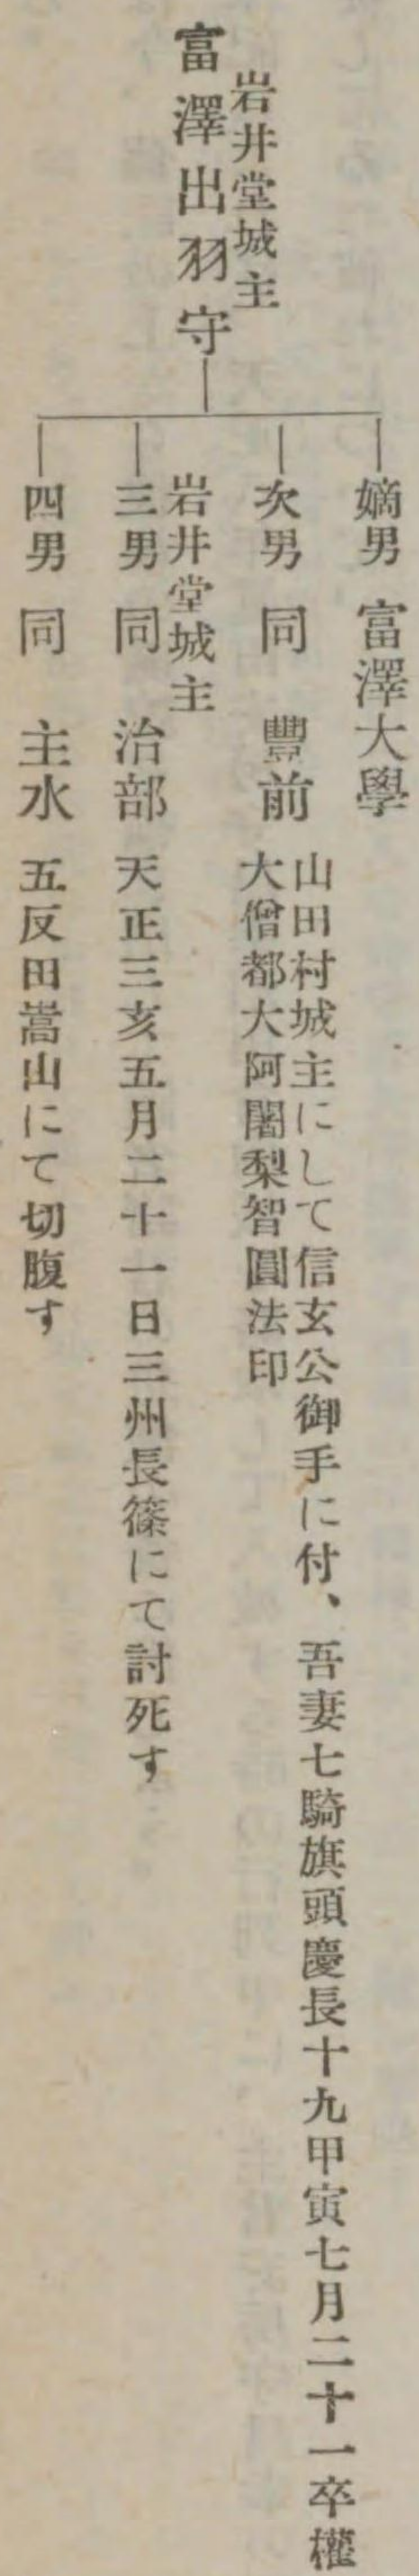 岩井堂城主
富澤出羽守
嫡男 富澤大學
次男 同 豐前
山田村城主にして信玄公御手に付、吾妻七騎旗頭慶長十九甲寅七月二十一卒權
大僧都大阿闍梨智圓法印
岩井堂城主
三男 同 治部 天正三亥五月二十一日三州長篠にて討死す
四男 同 主水 五反田嵩山にて切腹す